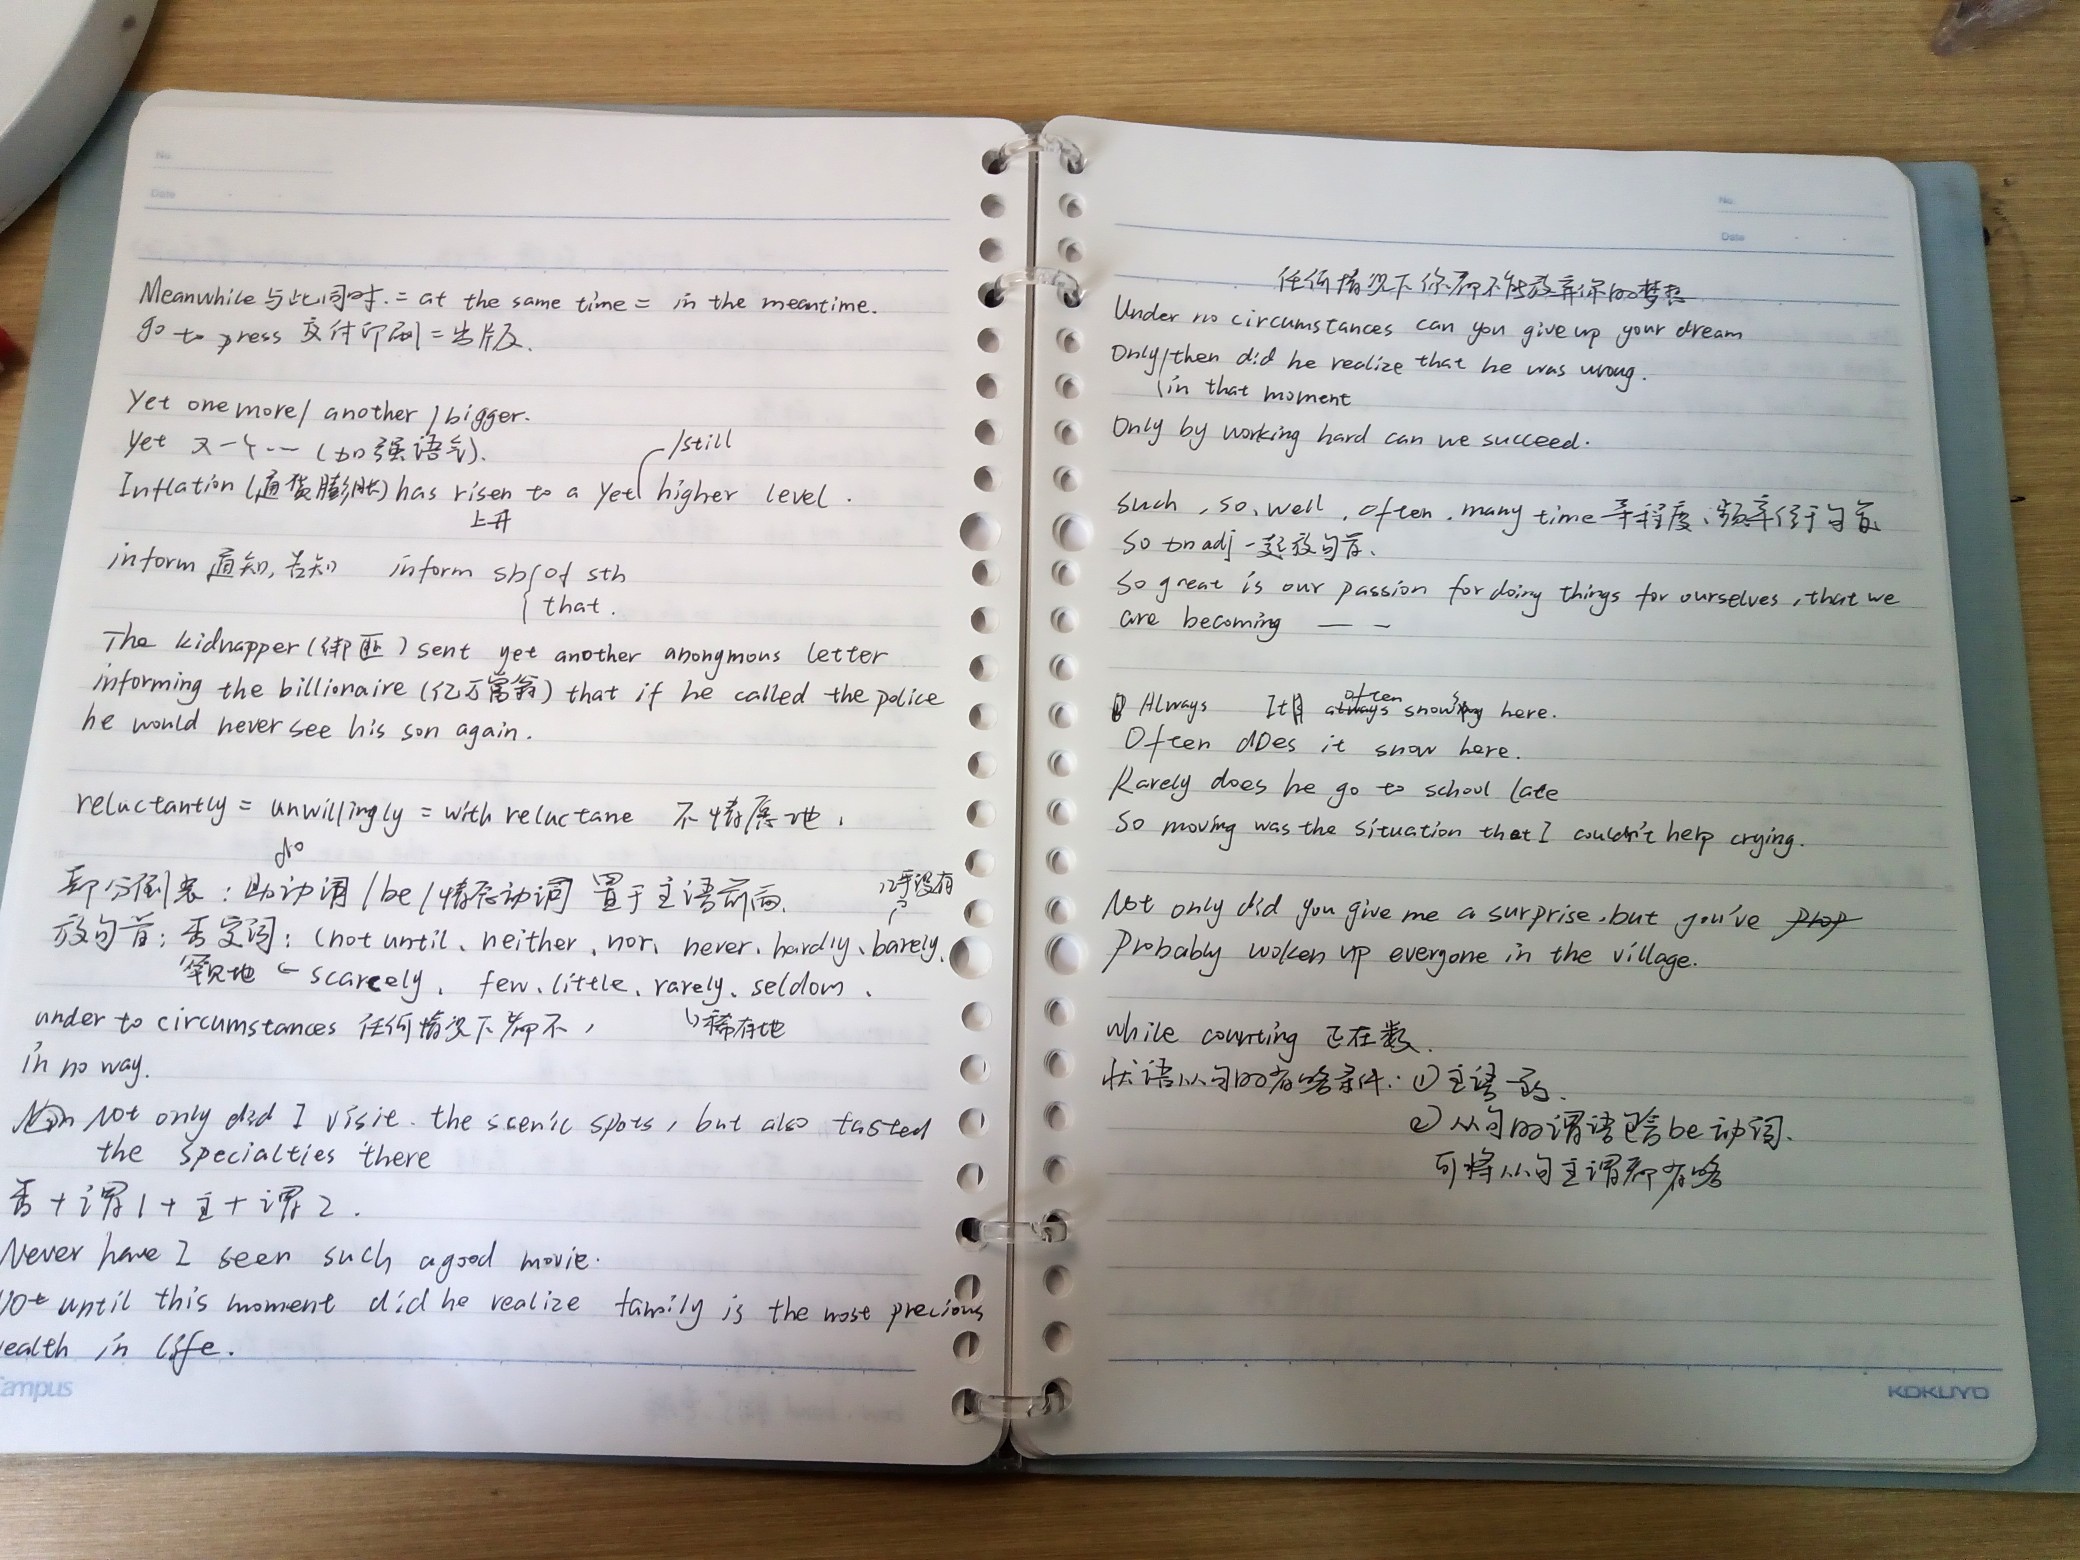 No.
Date
Meanwhile 与此同时. = at the same time = in the meantime.
go to press 交付印刷 = 出版.
Yet one more / another / bigger.
Yet 又一个 … (加强语气).
/still
Inflation (通货膨胀) has risen to a yet higher level.
上升
inform 通知, 告知 inform sb { of sth
{ that.
The kidnapper (绑匪) sent yet another anongmous letter
informing the billionaire (亿万富翁) that if he called the police
he would never see his son again.
reluctantly = unwillingly = with reluctane 不情愿地.
do
部分倒装: 助动词 / be / 情态动词 置于主语前面. 几乎没有
放句首: 否定词: (not until、neither、nor、never、hardly、barely、
罕见地 ← scarcely、few、little、rarely、seldom、
under to circumstances 任何情况下都不, ↳稀有地
in no way.
Not only did I visit the scenic spots, but also tasted
the specialties there
否 + 谓1 + 主 + 谓2.
Never have I seen such a good movie.
Not until this moment did he realize family is the most precious
ealth in life.
Campus
No.
Date
任何情况下你都不能放弃你的梦想
Under no circumstances can you give up your dream
Only { then did he realize that he was wrong.
{ in that moment
Only by working hard can we succeed.
such, so, well, often, many time 等程度、频率位于句首
So 和 adj 一起放句首.
So great is our passion for doing things for ourselves, that we
are becoming — –
often
Always It always snows here.
Often does it snow here.
Rarely does he go to school late
So moving was the situation that I couldn't help crying.
Not only did you give me a surprise, but you've prop
probably woken up everyone in the village.
while counting 正在数.
状语从句的省略条件: ① 主语一致.
② 从句的谓语包含be动词.
可将从句主谓都省略
KOKUYO